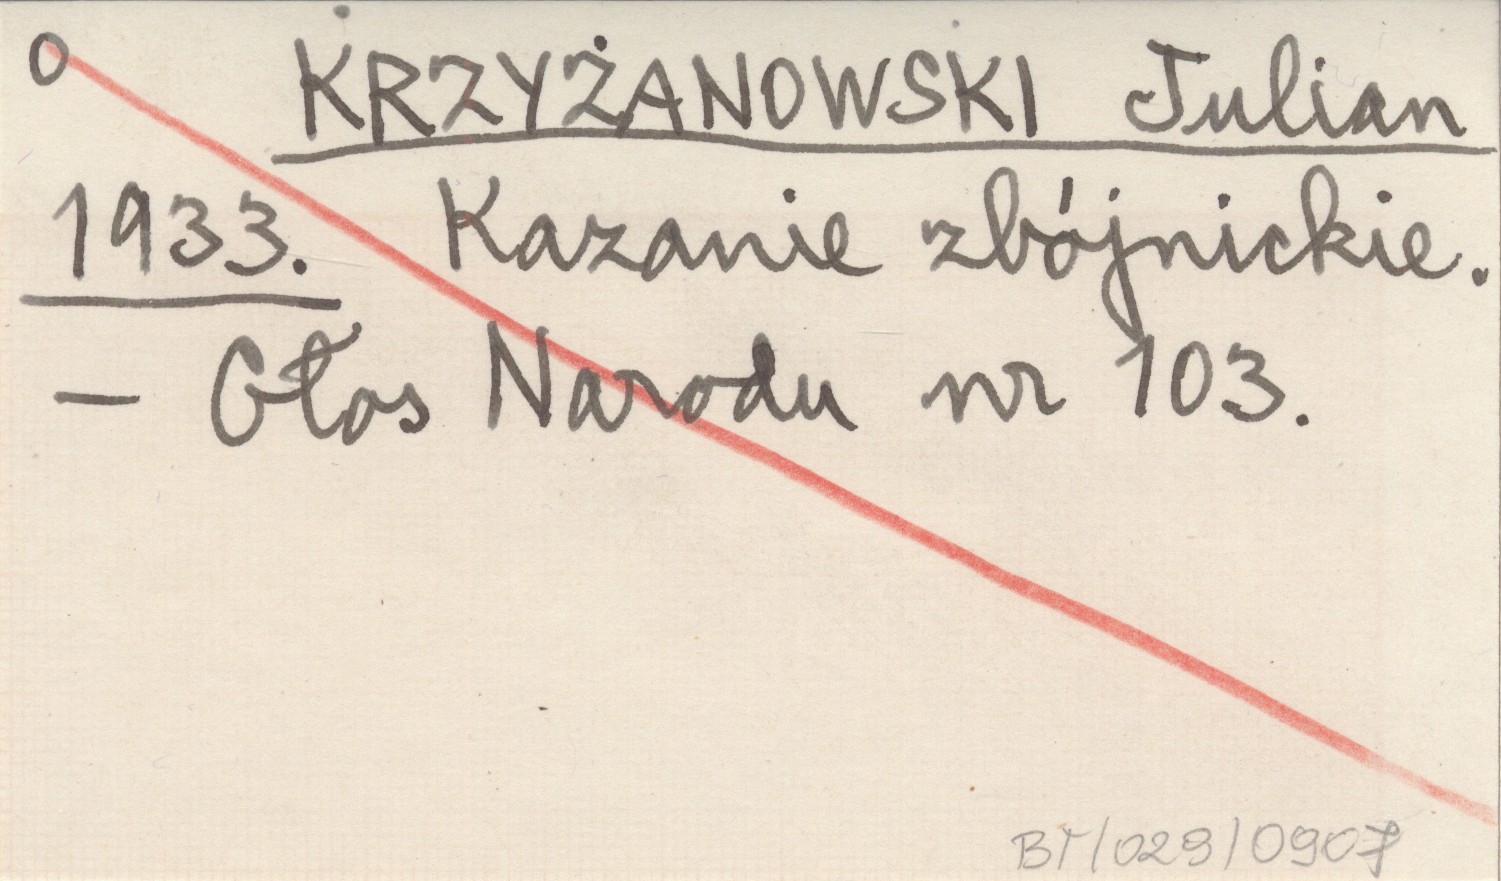 o KRZYŻANOWSKI Julian
1933. Kazanie zbójnickie.
— Głos Narodu nr 103.
BT/029/0907